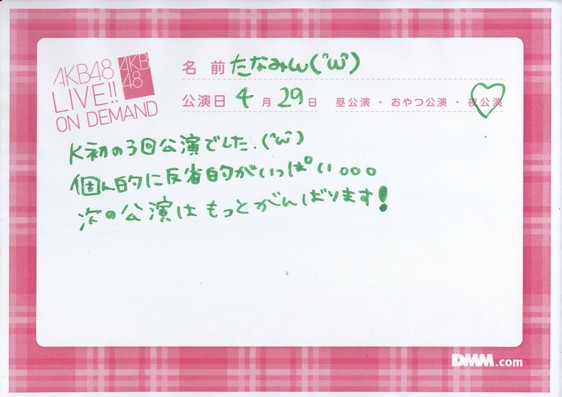 AKB48
LIVE!!
ON DEMAND
AKB
48
名 前 たなみん(´ω`)
公演日 4 月 29 日 昼公演・おやつ公演・夜公演
K初の3回公演でした.(´ω`)
個人的に反省的がいっぱい。。。
次の公演はもっとがんばります!
DMM.com